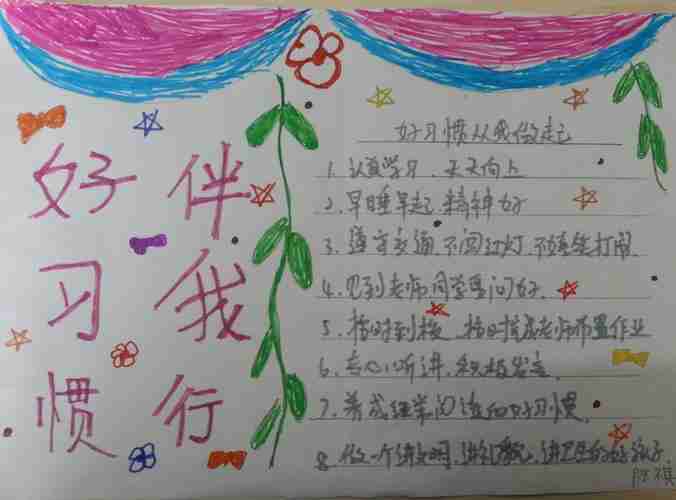 好习惯
伴我行
好习惯从我做起
1、认真学习、天天向上
2、早睡早起 精神好
3、遵守交通 不闯红灯 不追逐打闹
4、见到老师同学要问好、
5、按时到校 按时完成老师布置作业
6、专心听讲、积极发言、
7、养成经常阅读的好习惯、
8、做一个讲文明、讲礼貌、讲卫生的好孩子